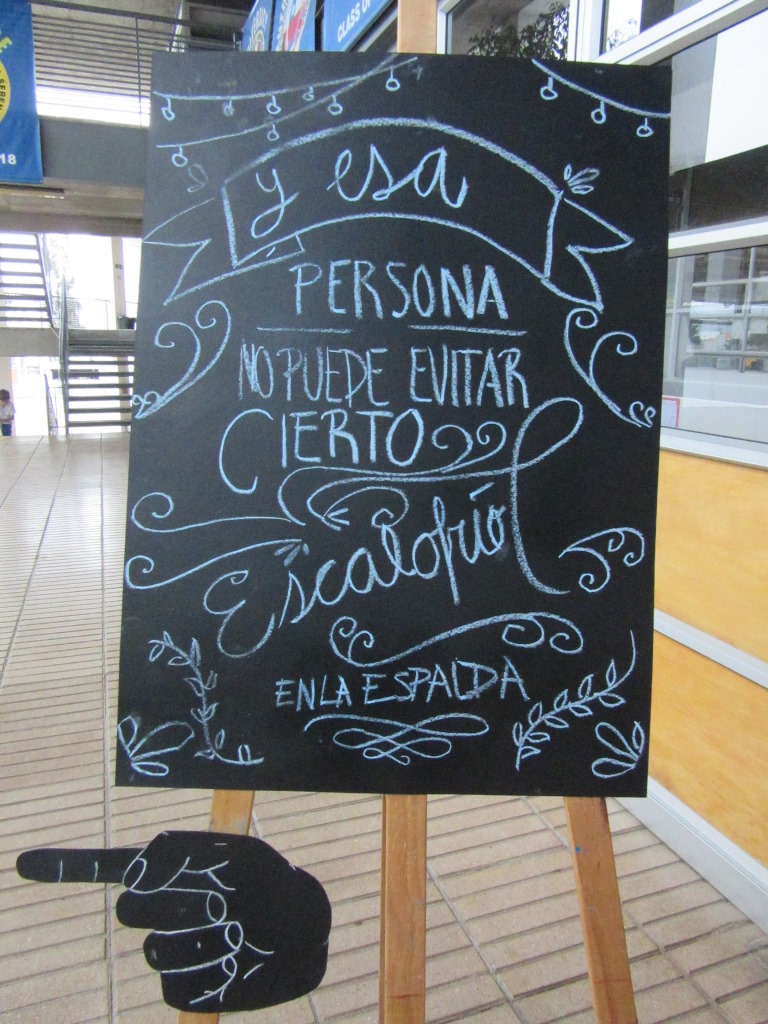 CLASS OF
18
y esa
PERSONA
NO PUEDE EVITAR
CIERTO
Escalofrío
EN LA ESPALDA